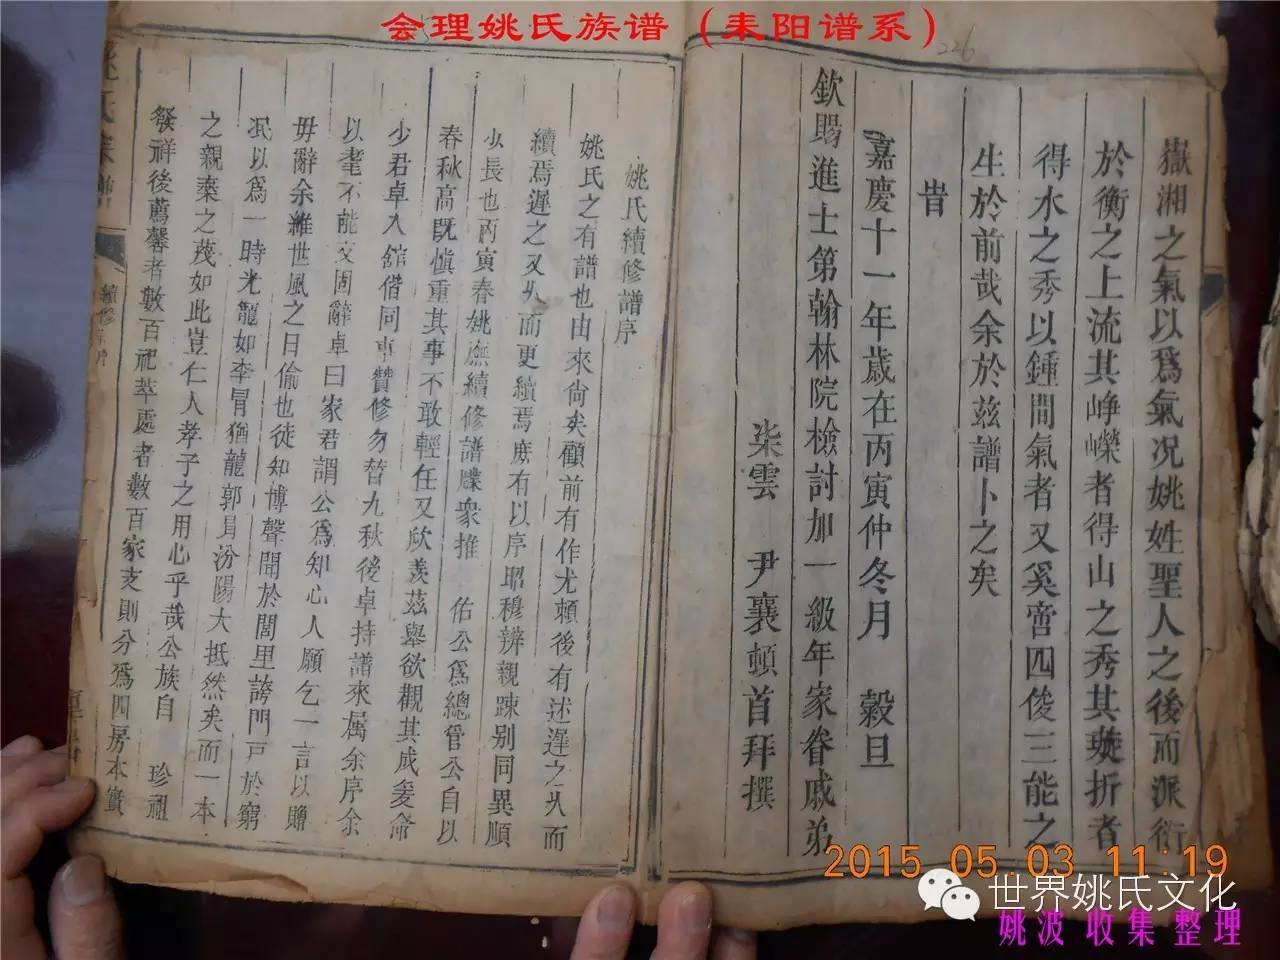 会理姚氏族谱（耒阳谱系）
226
嶽湘之氣以爲氣况姚姓聖人之後而派衍
於衡之上流其崢嶸者得山之秀其璇折者
得水之秀以鍾間氣者又奚啻四俊三能之
生於前哉余於兹譜卜之矣
旹
嘉慶十一年歲在丙寅仲冬月 穀旦
欽賜進士第翰林院檢討加一級年家眷戚弟
柒雲 尹襄頓首拜撰
姚氏續修譜序
姚氏之有譜也由來尙矣顧前有作尤賴後有述遲之久而
續焉遲之又久而更續焉庶有以序昭穆辨親踈别同異順
少長也丙寅春姚憮續修譜牒衆推 佑公爲總管公自以
春秋高既慎重其事不敢輕任又欣羨茲舉欲觀其成爰命
少君卓入舘偕同事贊修勿替九秋後卓持譜來属余序余
以耄不能文固辭卓曰家君謂公爲知心人願乞一言以贈
毋辭余維世風之日偷也徒知博聲聞於閭里誇門戸於窮
泯以爲一時光寵如李冐猶龍郭冐汾陽大抵然矣而一本
之親棄之蔑如此豈仁人孝子之用心乎哉公族自 珍祖
發祥後薦馨者數百祀萃處者數百家支則分爲四房本實
姚氏宗譜
續修
2015 05 03 11:19
世界姚氏文化
姚波 收集整理